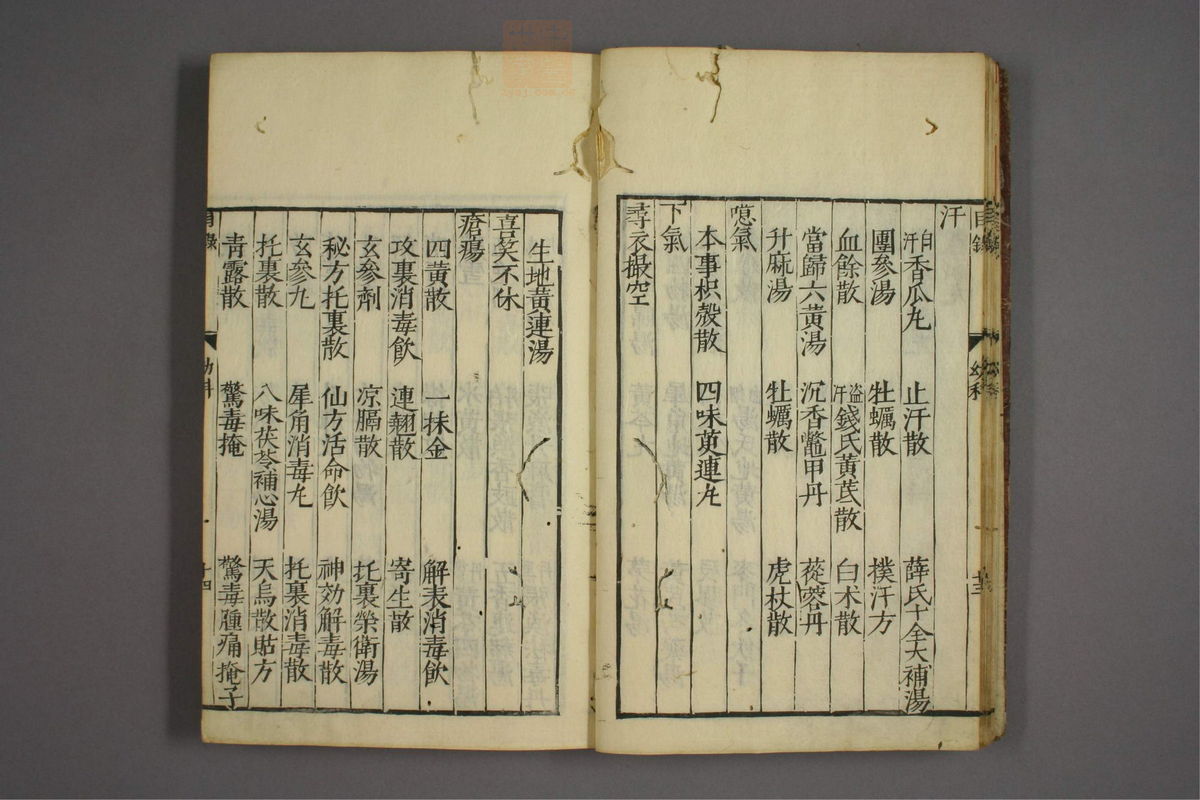 目錄 幼科
汗
自汗香瓜丸 止汗散 薛氏十全大補湯
團參湯 牡蠣散 撲汗方
血餘散 盜汗錢氏黃芪散 白术散
當歸六黃湯 沉香鼈甲丹 蓯蓉丹
升麻湯 牡蠣散 虎杖散
噫氣
本事枳殼散 四味茰連丸
下氣
尋衣撮空
生地黃連湯
喜笑不休
瘡瘍
四黃散 一抹金 解表消毒飲
攻裏消毒飲 連翹散 寄生散
玄參劑 凉膈散 托裏榮衛湯
秘方托裏散 仙方活命飲 神効解毒散
玄參丸 犀角消毒丸 托裏消毒散
托裏散 八味茯苓補心湯 天烏散貼方
靑露散 驚毒掩 驚毒腫痛掩子
目錄 幼科 十四